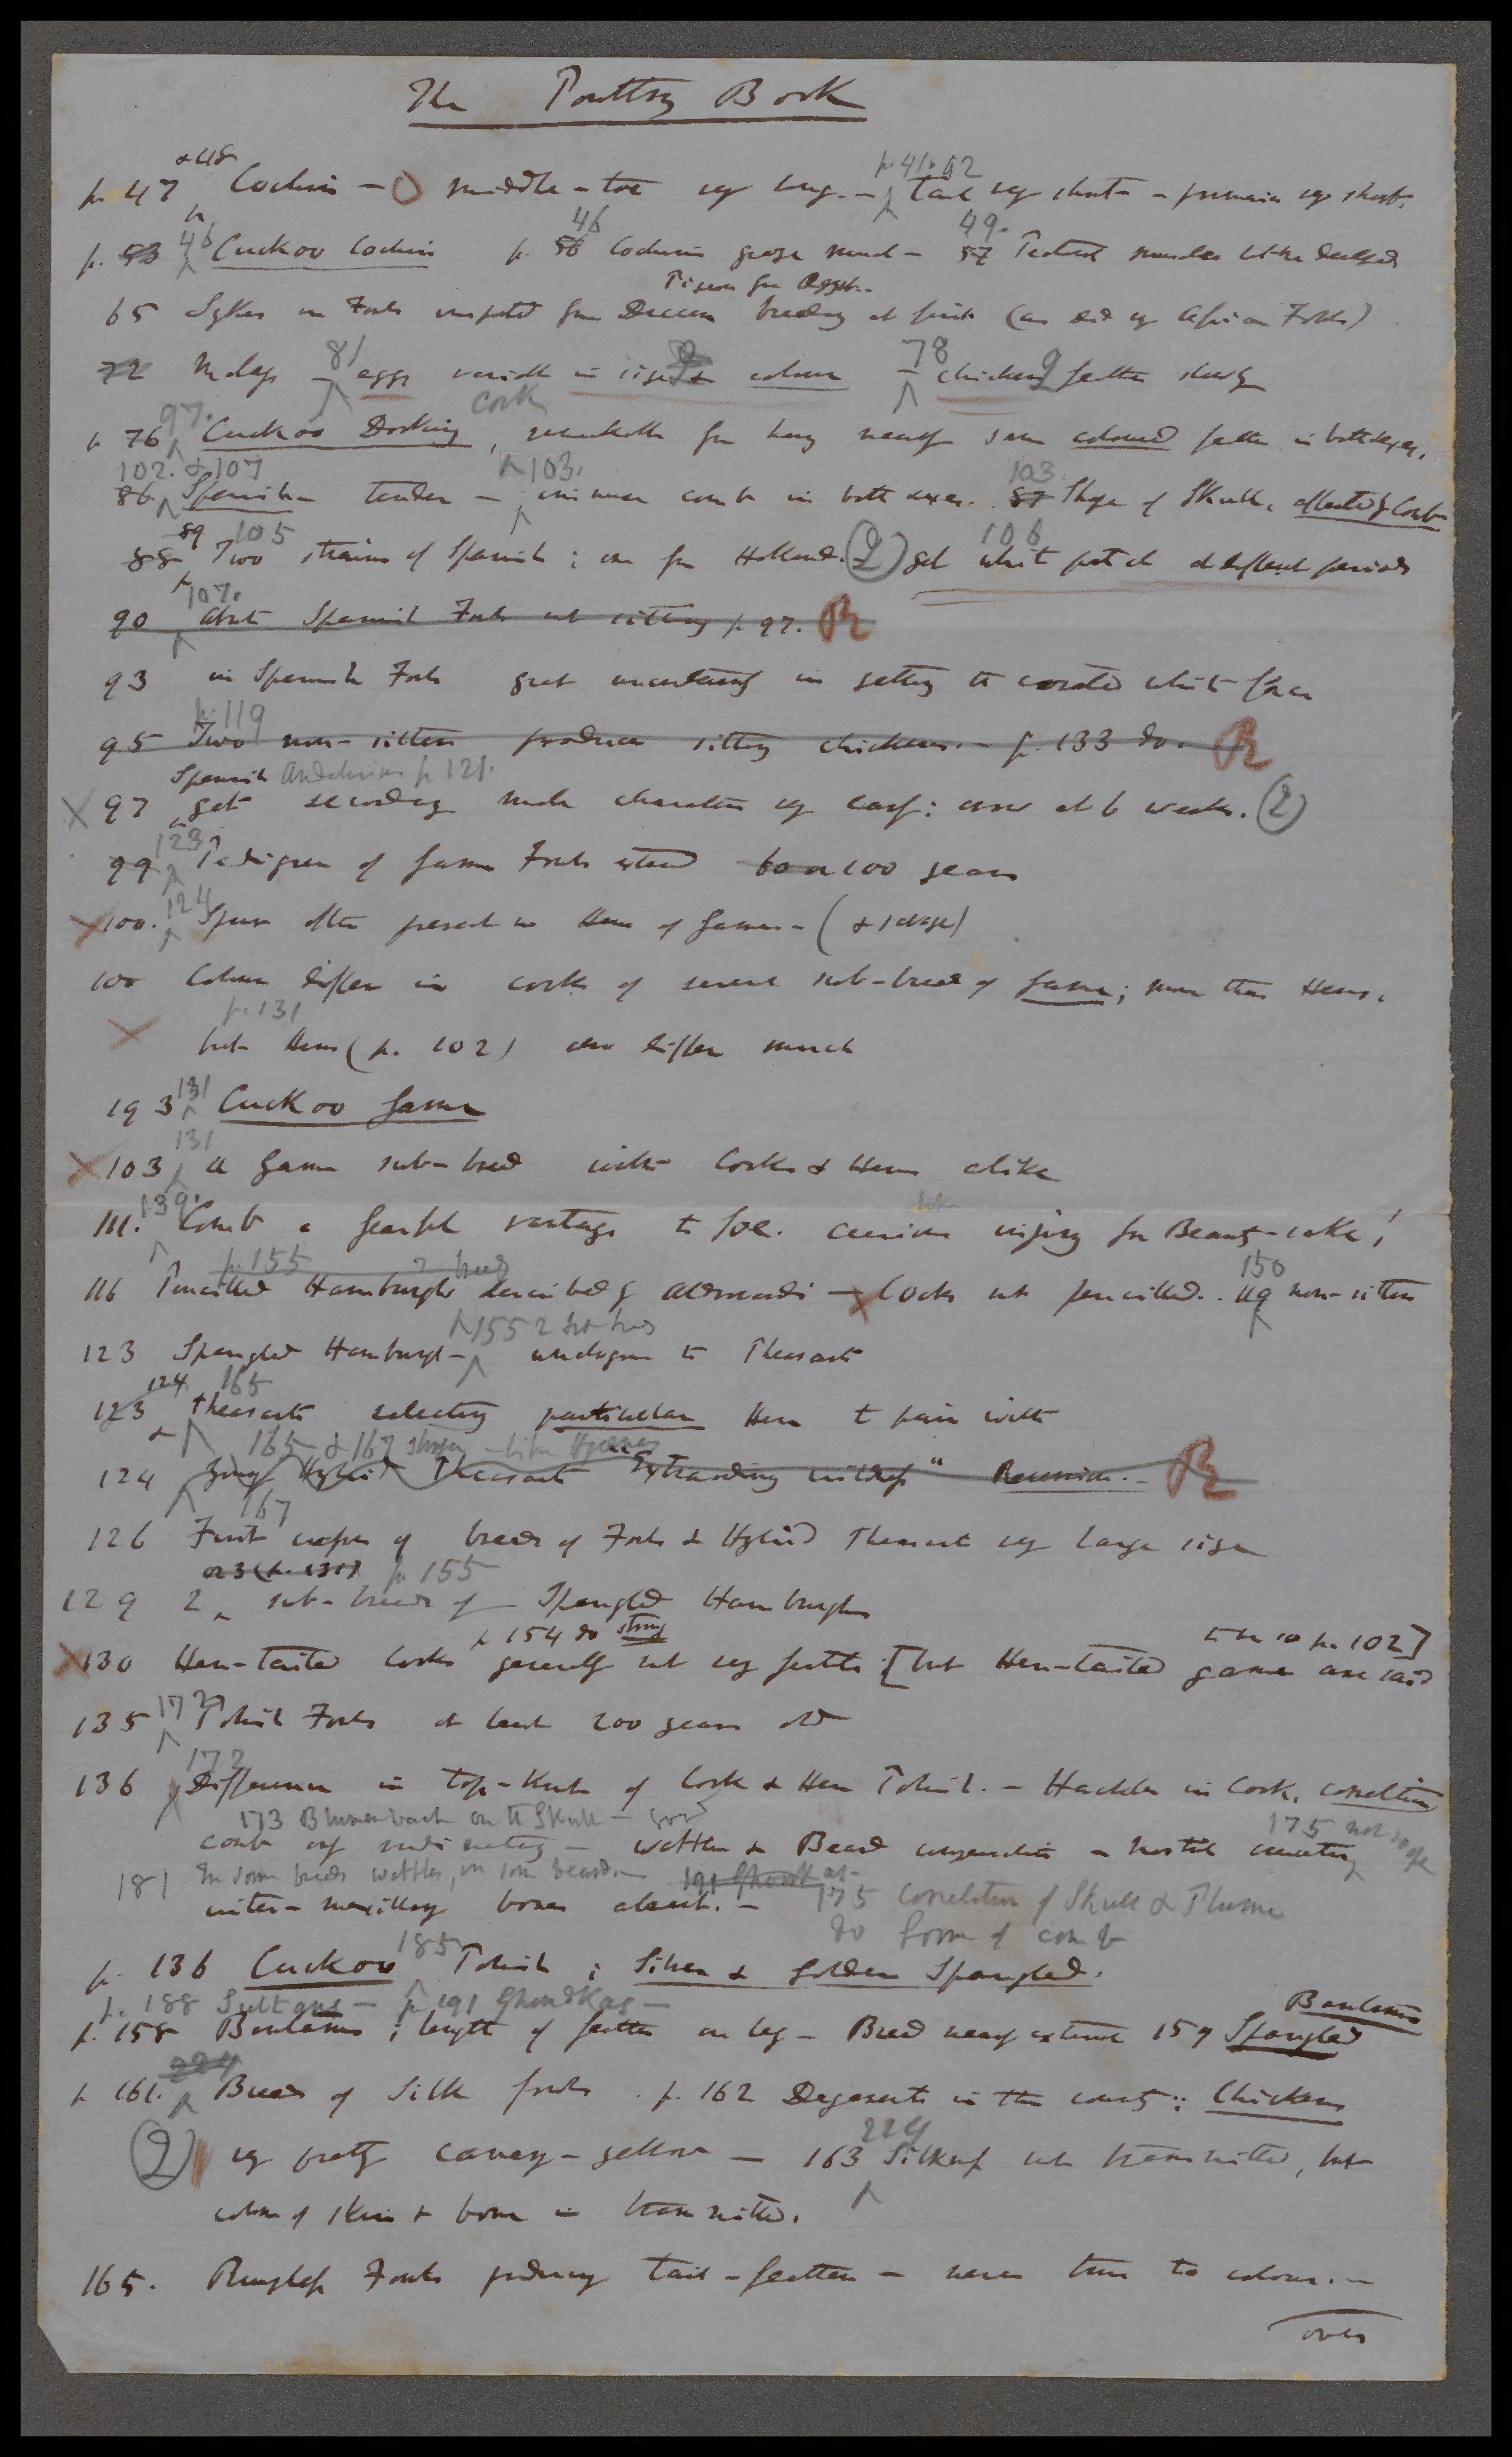 The Poultry Book
p. 47 & 48 Cochin — middle-toe very long. — p. 41. 42 Tail very short — primaries very short.
p. 53 46 Cuckoo Cochin p. 56 46 Cochins graze much — 57 49. Pectoral muscles little developed
Pigeons from Egypt.
65 Sykes on Fowls imported from Deccan breeding at first (as did my African Fowls)
72 Malays — 81 eggs variable in size & colour — 78 chickens feather slowly
p 76 97. Cuckoo Dorking, cock remarkable for having nearly same coloured feather in both sexes.
102. & 107
86 Spanish tender — 103. immense comb in both sexes. 87 103 Shape of Skull, affected by Comb
88 89 105 Two strains of Spanish; one from Holland. (2) get white patch 106 at different periods
90 107. About Spanish Fowls not sitting p 97. R
93 in Spanish Fowls great uncertainty in getting the coveted white face
95 p. 119 Two non-sitters produce sitting chickens. — p. 133 do. R
Spanish Andalusians p 121.
97 get secondary male characters very early: crow at 6 weeks. (2)
99 123 Pedigree of Game Fowls extend 60 or 100 years
100. 124 Spurs often present in Hens of Games —
100 Colour differ in cocks of several sub-breeds of Game; more than Hens,
p. 131
but Hens (p. 102) also differ much
193 131 Cuckoo Game
103 131 a Game sub-breed with Cocks & Hens alike
111. 139. Comb a fearful vantage to foe. curious injury for Beauty-sake!
p. 155 2 breeds
116 Pencilled Hamburghs described by Aldrovandi — Cocks not pencilled. 150 119 non-sitters
155 2 sub breeds
123 Spangled Hamburgh — analogous to Pheasants
123 124 165 Pheasants selecting particular Hen to pair with
165 & 167 — like Hyaenas
124 Hybrid Pheasants "Extraordinary wildness" Reversion. — R
167
126 First crosses of breeds of Fowls & Hybrid Pheasant very large size
or 3 (p. 131) p 155
129 2 sub-breeds of Spangled Hamburghs
p 154 do strong to be so p. 102]
130 Hen-tailed Cocks generally not very fertile [but Hen-tailed game are said
135 172 Polish Fowls at least 200 years old
172
136 Difference in top-knot of Cock & Hen Polish. — Hackles in Cock, correlation
173 Blumenbach on the Skull — good 175 not so often
comb very rudimentary — wattles & Beard — nostrils
181 In some breeds wattles, in some beards 191 Ghondkas —
inter-maxillary bones absent. — 175 Correlation of Skull & Plume
do form of comb
p. 136 Cuckoo 185 Polish; Silver & Golden Spangled.
p. 188 Sultans — p 191 Ghondkas —
p. 158 Bantams; length of feathers on leg — Breed nearly extinct 159 Spangled Bantams
p 161. 224 Breeds of Silk fowls. p. 162 Degenerate in this country; Chickens
(2) very pretty canary-yellow — 163 224 Silkiness not transmitted, but
colour of skin & bone is transmitted.
165. Rumpless Fowls producing tail-feathers — never true to colour. —
over